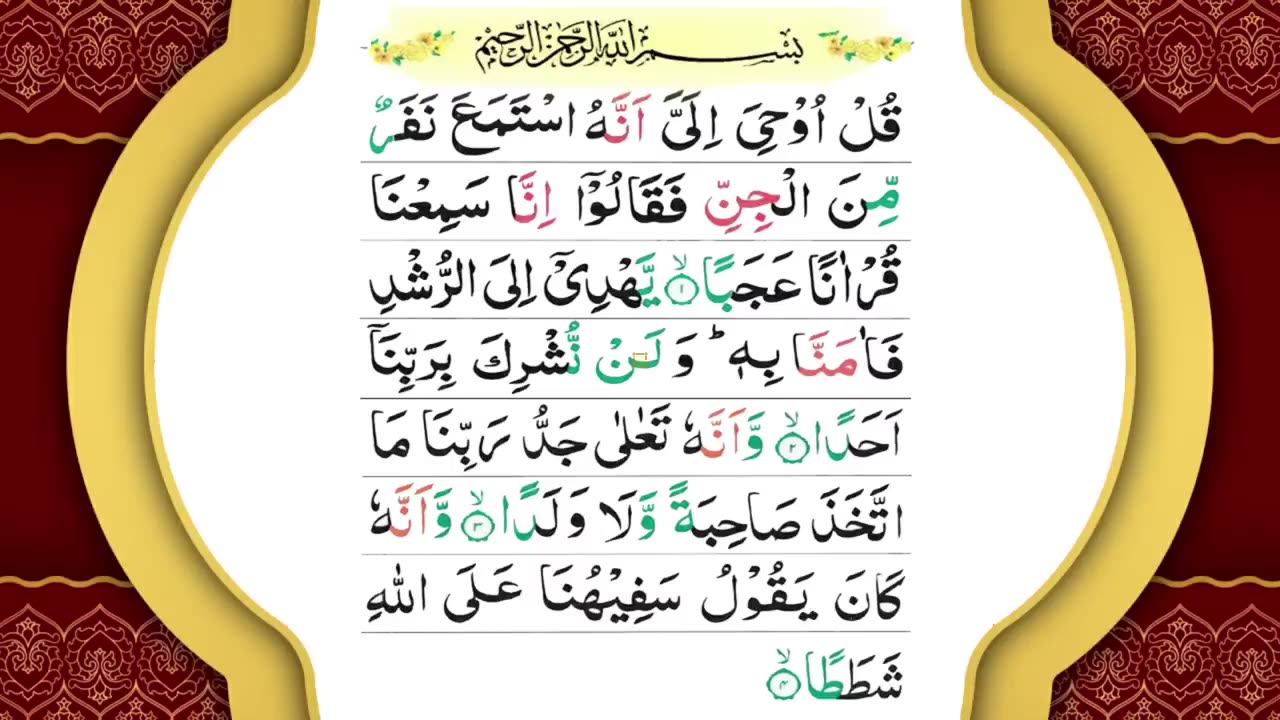 بِسْمِ اللهِ الرَّحْمٰنِ الرَّحِيْمِ
قُلْ اُوْحِىَ اِلَىَّ اَنَّهُ اسْتَمَعَ نَفَرٌ
مِّنَ الْجِنِّ فَقَالُوْۤا اِنَّا سَمِعْنَا
قُرْاٰنًا عَجَبًا ۙ‏﴿۱﴾ يَّهْدِىْۤ اِلَى الرُّشْدِ
فَاٰمَنَّا بِهٖ ؕ وَلَنْ نُّشْرِكَ بِرَبِّنَاۤ
اَحَدًا ۙ‏﴿۲﴾ وَّاَنَّهٗ تَعٰلٰى جَدُّ رَبِّنَا مَا
اتَّخَذَ صَاحِبَةً وَّلَا وَلَدًا ۙ‏﴿۳﴾ وَّاَنَّهٗ
كَانَ يَقُوْلُ سَفِيْهُنَا عَلَى اللهِ
شَطَطًا ۙ‏﴿۴﴾